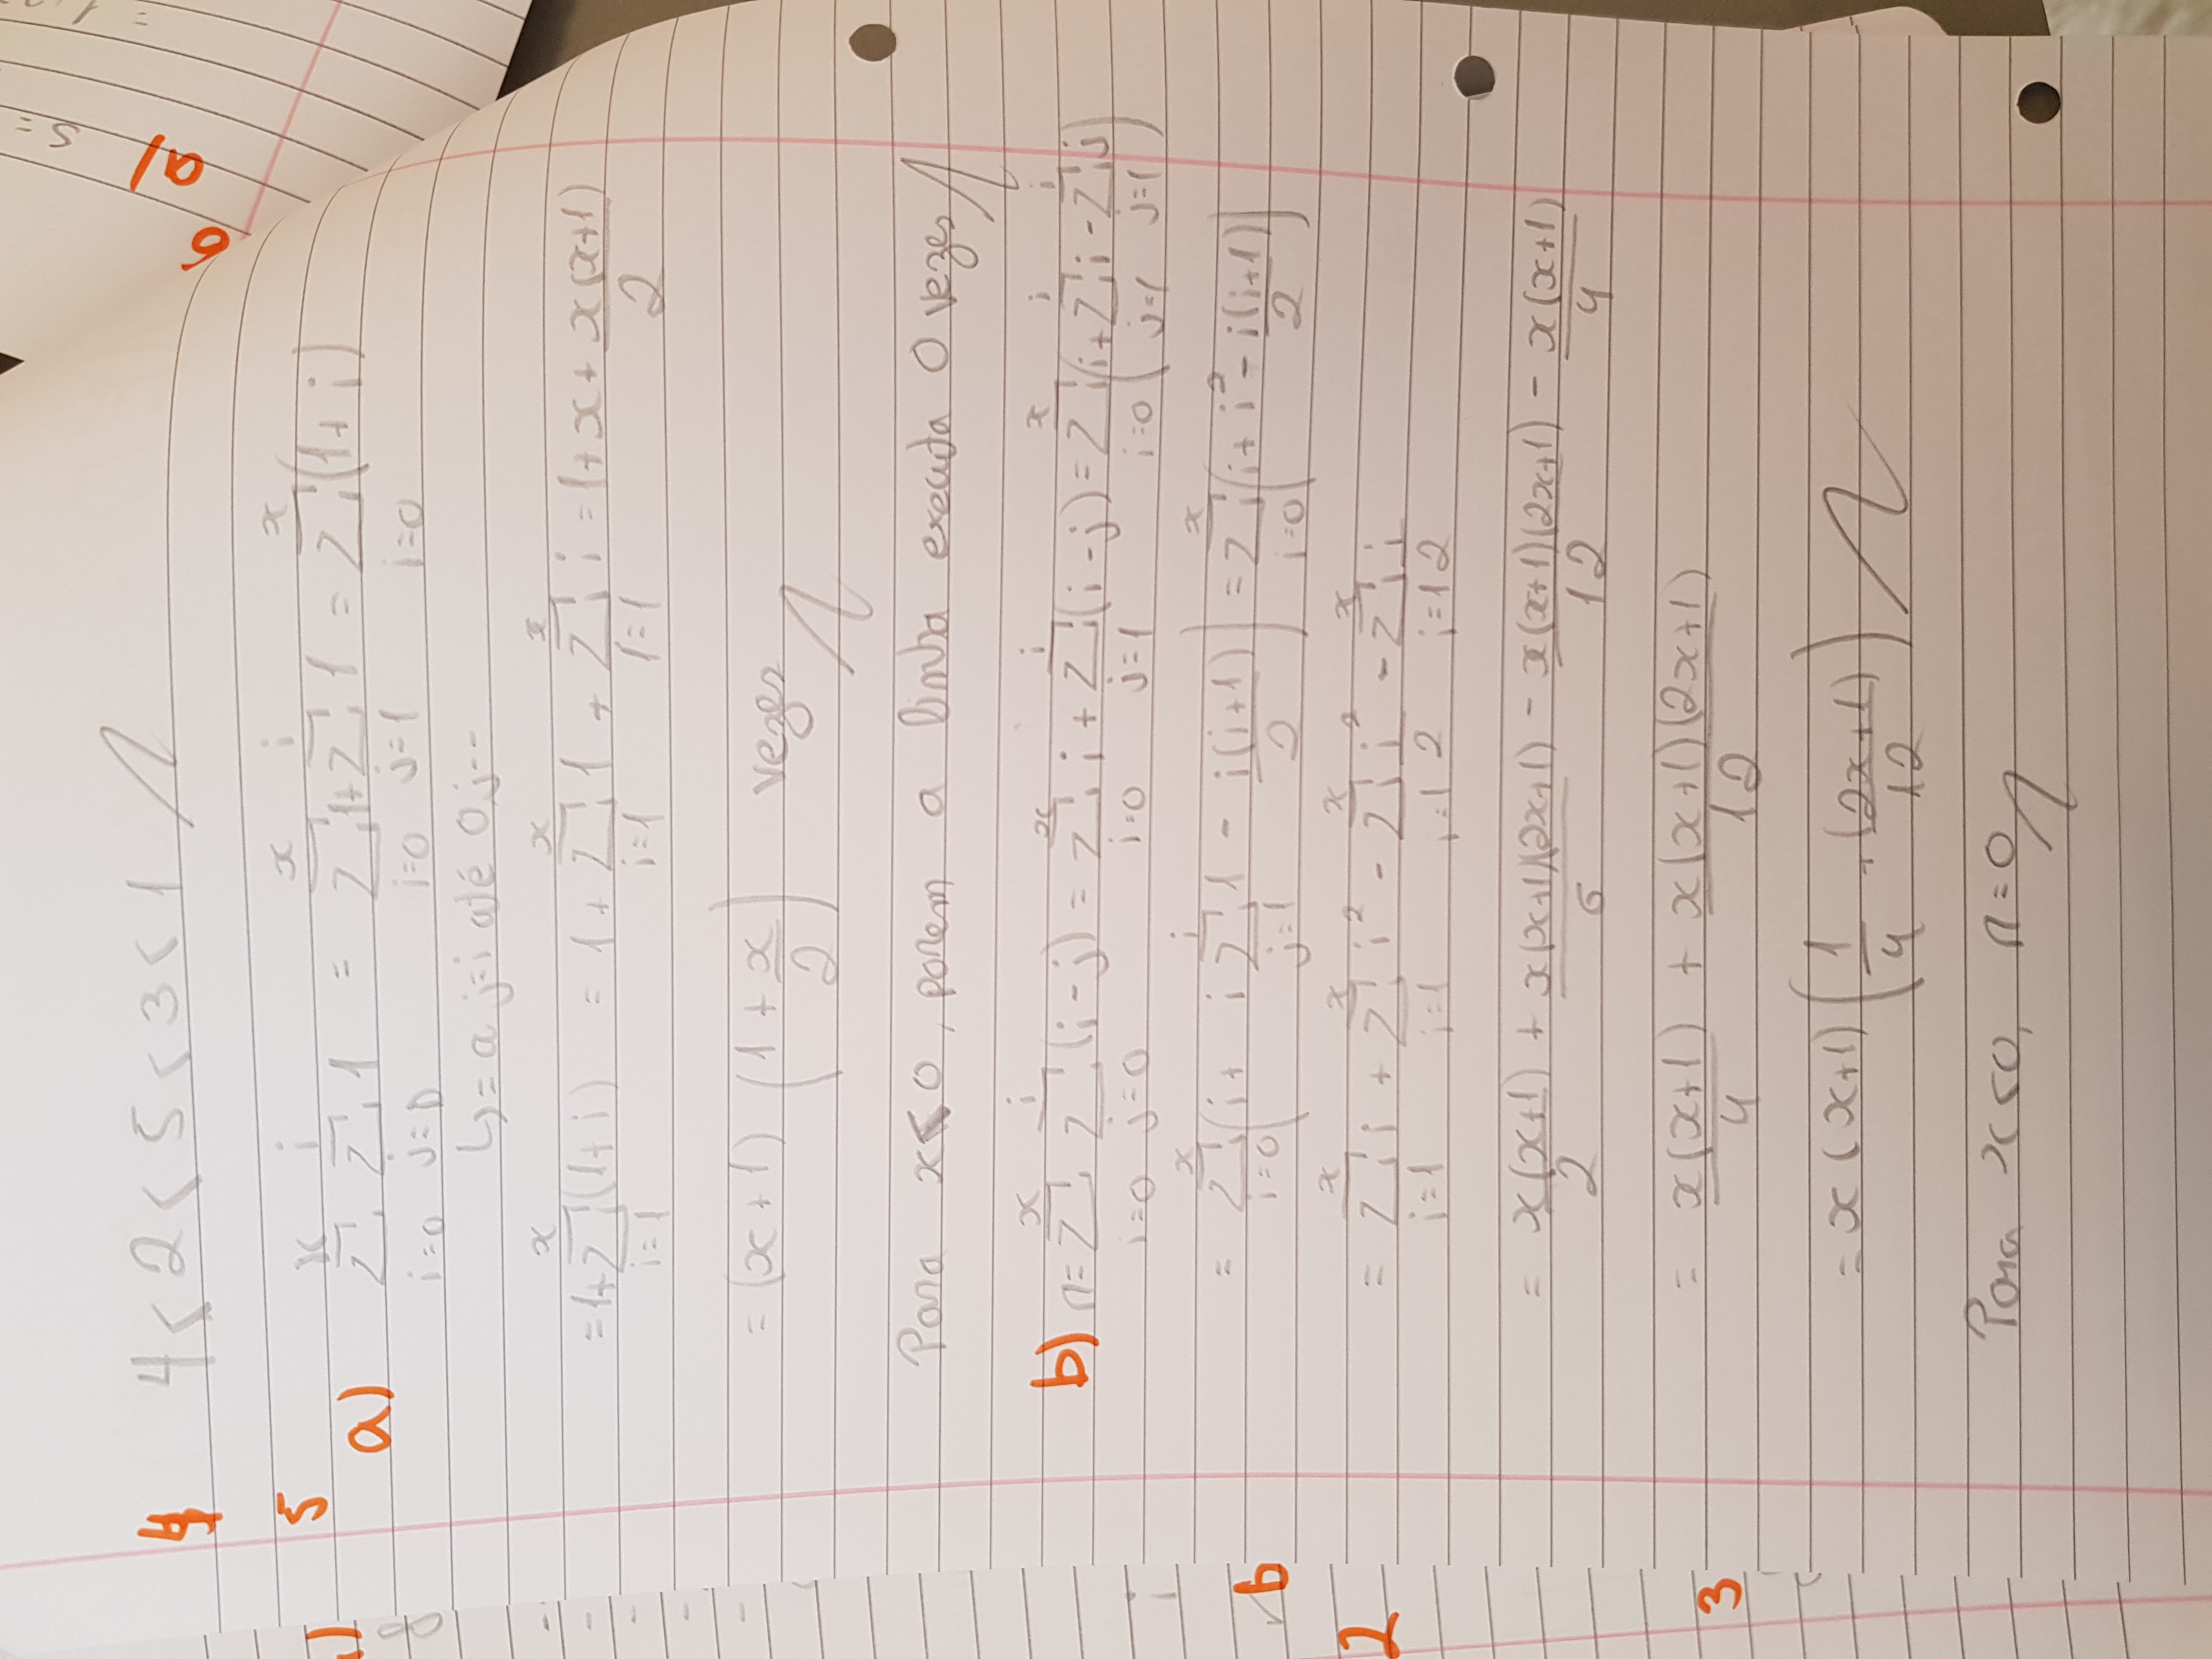 4 4 < 2 < 5 < 3 < 1
5
a) x∑i=0 i∑j=0 1 = x∑i=0 1 + i∑j=1 1 = x∑i=0 (1 + i)
↳ = a j=i até 0, j--
= 1 + x∑i=1 (1 + i) = 1 + x∑i=1 1 + x∑1=1 i = 1 + x + x(x+1)/2
= (x + 1) (1 + x/2) vezes
Para x < 0, porem a linha executa 0 vezes
b) n = x∑i=0 i∑j=0 (i - j) = x∑i=0 i + i∑j=1 (i - j) = x∑i=0 (i + i∑j=1 i - i∑j=1 j)
= x∑i=0 (i + i i∑j=1 1 - i(i+1)/2) = x∑i=0 (i + i² - i(i+1)/2)
= x∑i=1 i + x∑i=1 i² - x∑i=1 i²/2 - x∑i=1 i/2
= x(x+1)/2 + x(x+1)(2x+1)/6 - x(x+1)(2x+1)/12 - x(x+1)/4
= x(x+1)/4 + x(x+1)(2x+1)/12
= x(x+1) (1/4 + (2x+1)/12)
Para x < 0, n = 0
6
a) S =
b
2
3